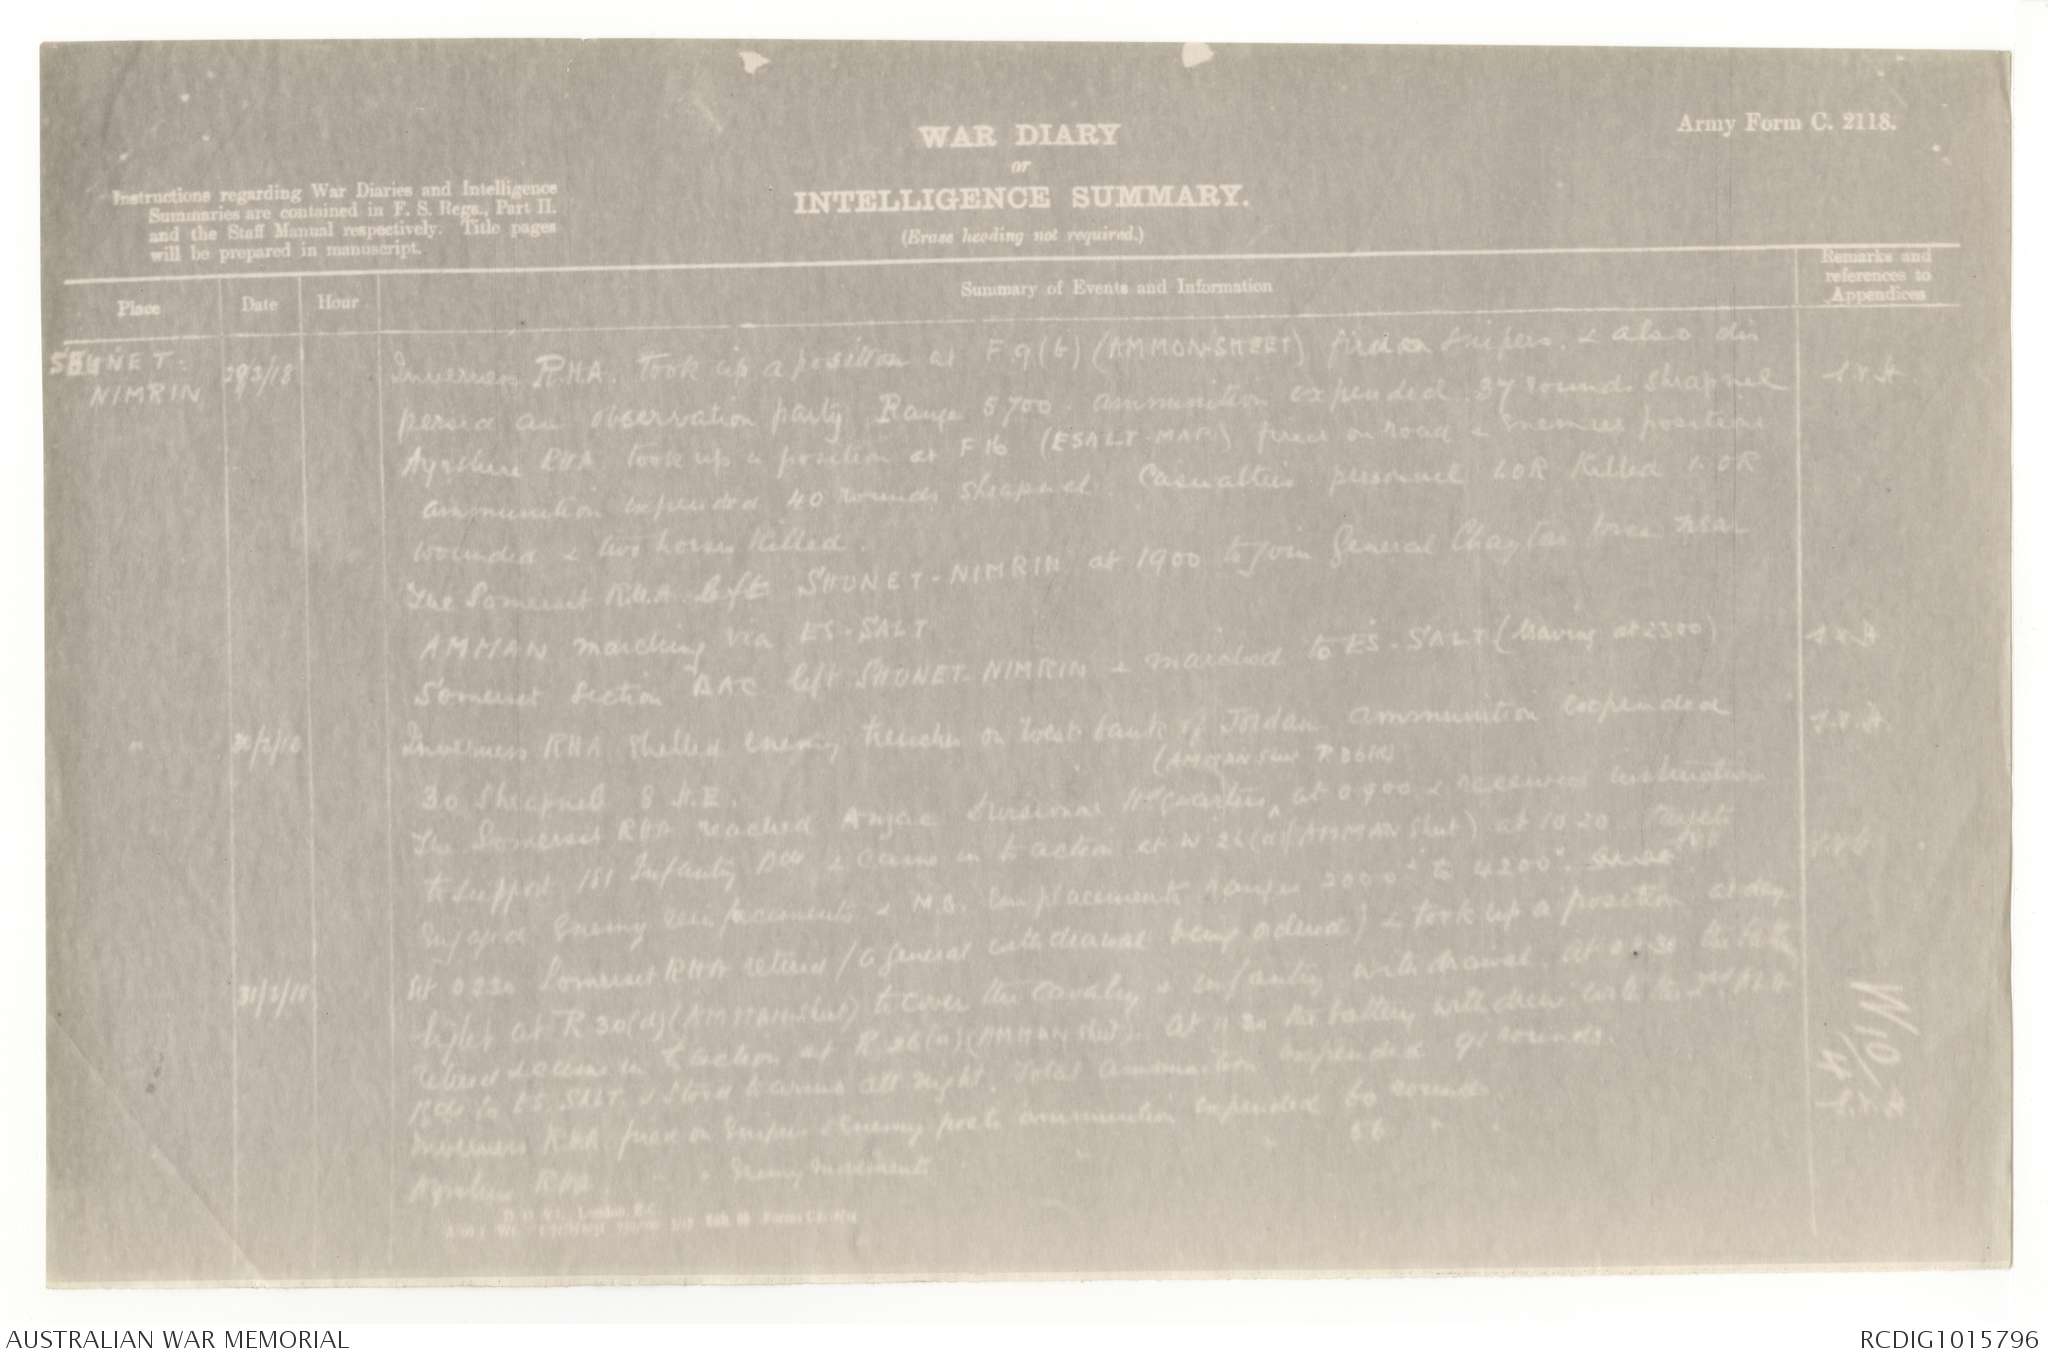 Army Form C. 2118.
WAR DIARY
or
INTELLIGENCE SUMMARY.
(Erase heading not required.)
Instructions regarding War Diaries and Intelligence
Summaries are contained in F. S. Regs., Part II.
and the Staff Manual respectively. Title pages
will be prepared in manuscript.
Place Date Hour Summary of Events and Information Remarks and references to Appendices
SHUNET NIMRIN 29/3/18 Inverness RHA. Took up a position at F 9(b) (AMMON-SHEET) fired on Snipers. & also dis
persed an observation party Range 5700. ammunition expended 37 rounds shrapnel
Ayrshire RHA Took up a position at F16 (ESALT-MAP) fired on road & Enemies positions
ammunition expended 40 rounds shrapnel. Casualties personnel OR Killed 1 OR
wounded & two horses Killed.
The Somerset R.H.A. left SHUNET-NIMRIN at 1900 to join General Chaytor's force near
AMMAN marching via ES-SALT
Somerset Section BAC left SHUNET-NIMRIN & marched to ES-SALT (leaving at 2300)
" 30/3/18 Inverness RHA shelled enemy trenches on West bank of Jordan ammunition expended
30 Shrapnel 8 H.E.
The Somerset RHA reached Anzac Divisional Hd Quarters (AMMAN Sheet) at 0900 & received instructions
to support 181 Infantry Bde & came in to action at W 26(a) (AMMAN Sheet) at 1020
Engaged Enemy emplacements & M.G. Emplacements ranges 2000 to 4200
31/3/18 At 0230 Somerset RHA retired (a general withdrawal being ordered) & took up a position at day
light at R 30(d) (AMMAN sheet) to cover the cavalry & infantry withdrawal. At 30 the battery
retired & came in to action at R 26(a) (AMMAN sheet). At 1130 the battery withdrew with the 2nd ALH
Bde to ES. SALT, & stood to arms all night. Total ammunition expended 91 rounds.
Inverness RHA fired on Snipers & Enemy posts ammunition expended 60 rounds.
Ayrshire RHA " " Enemy movement " " 56 " .
AUSTRALIAN WAR MEMORIAL
RCDIG1015796